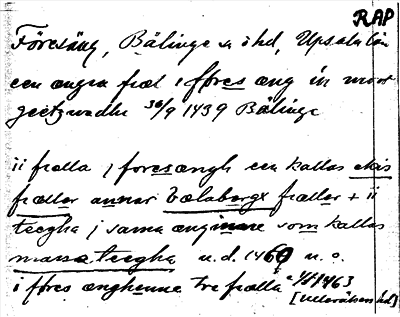 RAP
Föresäng, Bälinge sn o hd, Upsala län
een ængia fræl i føres æng in mot
30/9 1439 Bälinge
ii frælla j foresængh een kallas
fræller annar Vælabergx fræller + ii
teegha j samaænginne som kallas
marsateegha u.d. 1460 u.o.
i føres ænghenne tre frælla 1463